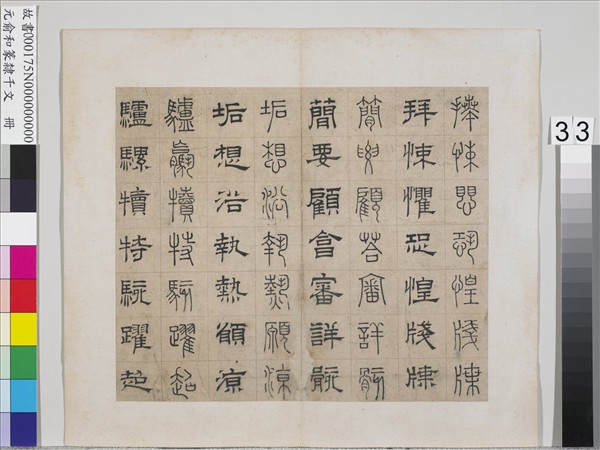 33
拜悚懼恐惶牋牒
拜悚懼恐惶牋牒
簡要顧答審詳骸
簡要顧畣審詳骸
垢想浴執熱願涼
垢想浴執熱願涼
驢騾犢特駭躍超
驢騾犢特駭躍超
故書000175N000000000
元俞和篆隸千文 冊